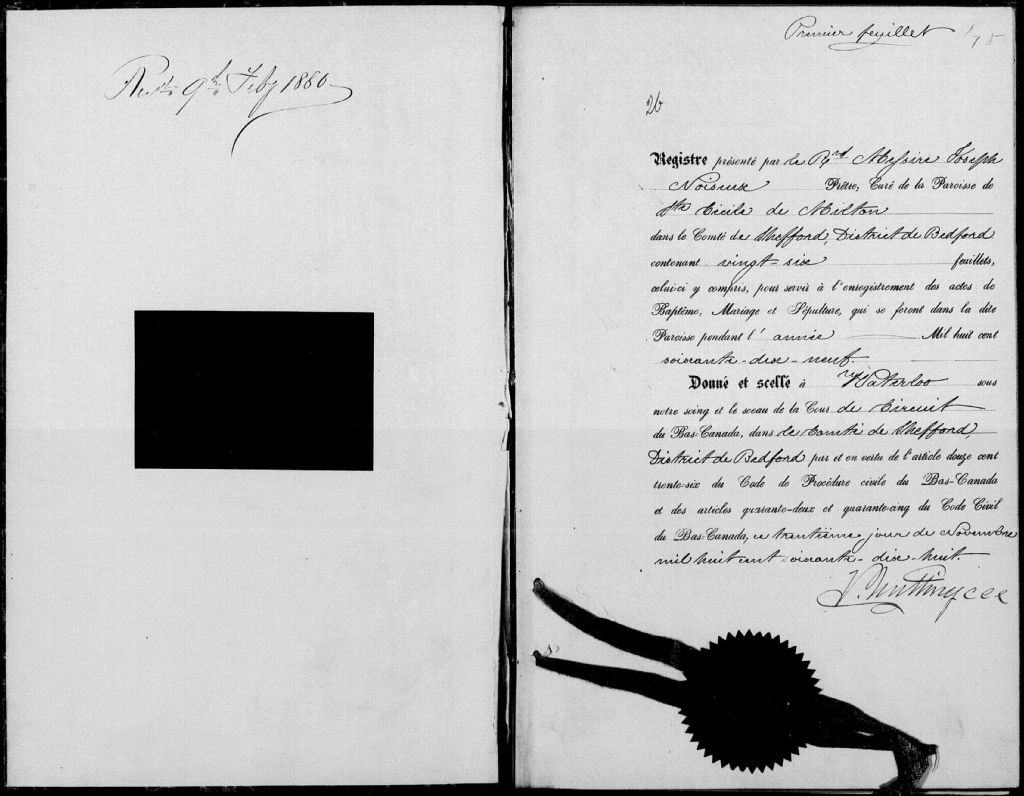 9th Feby 1880
Premier feuillet
26
Registre présenté par le Rvd Messire Joseph
Noiseux Prêtre, Curé de la Paroisse de
Ste Cécile de Milton
dans le Comté de Shefford, District de Bedford
contenant vingt-six feuillets,
celui-ci y compris, pour servir à l'enregistrement des actes de
Baptême, Mariage et Sépulture, qui se feront dans la dite
Paroisse pendant l'année Mil huit cent
soixante-dix-neuf.
Donné et scellé à Waterloo sous
notre seing et le sceau de la Cour de Circuit
du Bas-Canada, dans le Comté de Shefford,
District de Bedford par et en vertu de l'article douze cent
trente-six du Code de Procédure civile du Bas-Canada
et des articles quarante-deux et quarante-cinq du Code Civil
du Bas-Canada, ce trentième jour de Novembre
mil huit cent soixante-dix-huit.